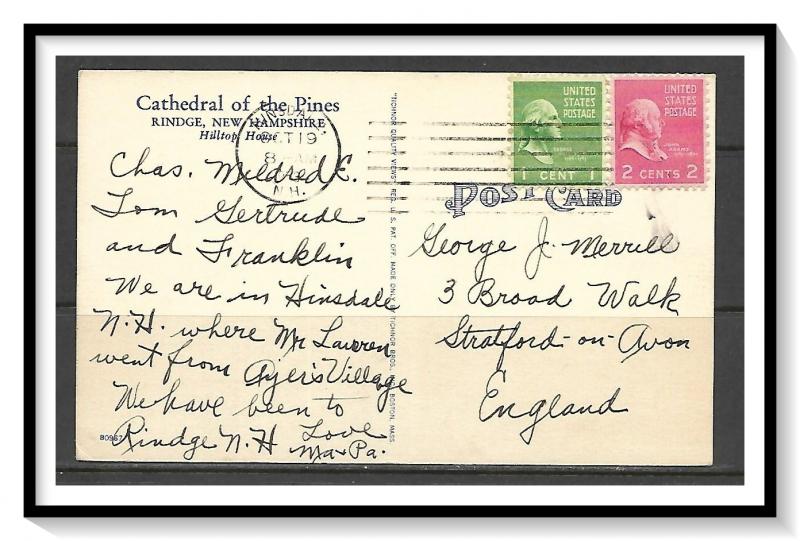 Cathedral of the Pines
RINDGE, NEW HAMPSHIRE
Hilltop House
Chas. Mildred E.
Tom Gertrude
and Franklin
We are in Hinsdale
N.H. where Mr Lawren
went from Ayer's Village
We have been to
Rindge N.H Love
Ma & Pa.
80967
"TICHNOR QUALITY VIEWS" REG. U. S. PAT. OFF. MADE ONLY BY TICHNOR BROS., INC., BOSTON, MASS.
OCT 19
8 AM
N.H.
UNITED
STATES
POSTAGE
GEORGE
1 CENT 1
UNITED
STATES
POSTAGE
JOHN
ADAMS
2 CENTS 2
POST CARD
George J. Merrill
3 Broad Walk
Stratford-on-Avon
England